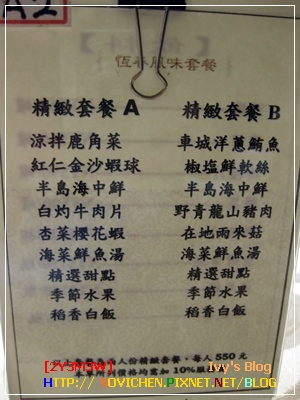 恆春風味套餐
精緻套餐 A
涼拌鹿角菜
紅仁金沙蝦球
半島海中鮮
白灼牛肉片
杏菜櫻花蝦
海菜鮮魚湯
精選甜點
季節水果
稻香白飯
精緻套餐 B
車城洋蔥鮪魚
椒塩鮮軟絲
半島海中鮮
野青龍山豬肉
在地雨來菇
海菜鮮魚湯
精選甜點
季節水果
稻香白飯
人份精緻套餐,每人 550 元
本單所列價格均需加 10%服務
Ivy's Blog
HTTP://YOVICHEN.PIXNET.NET/BLOG